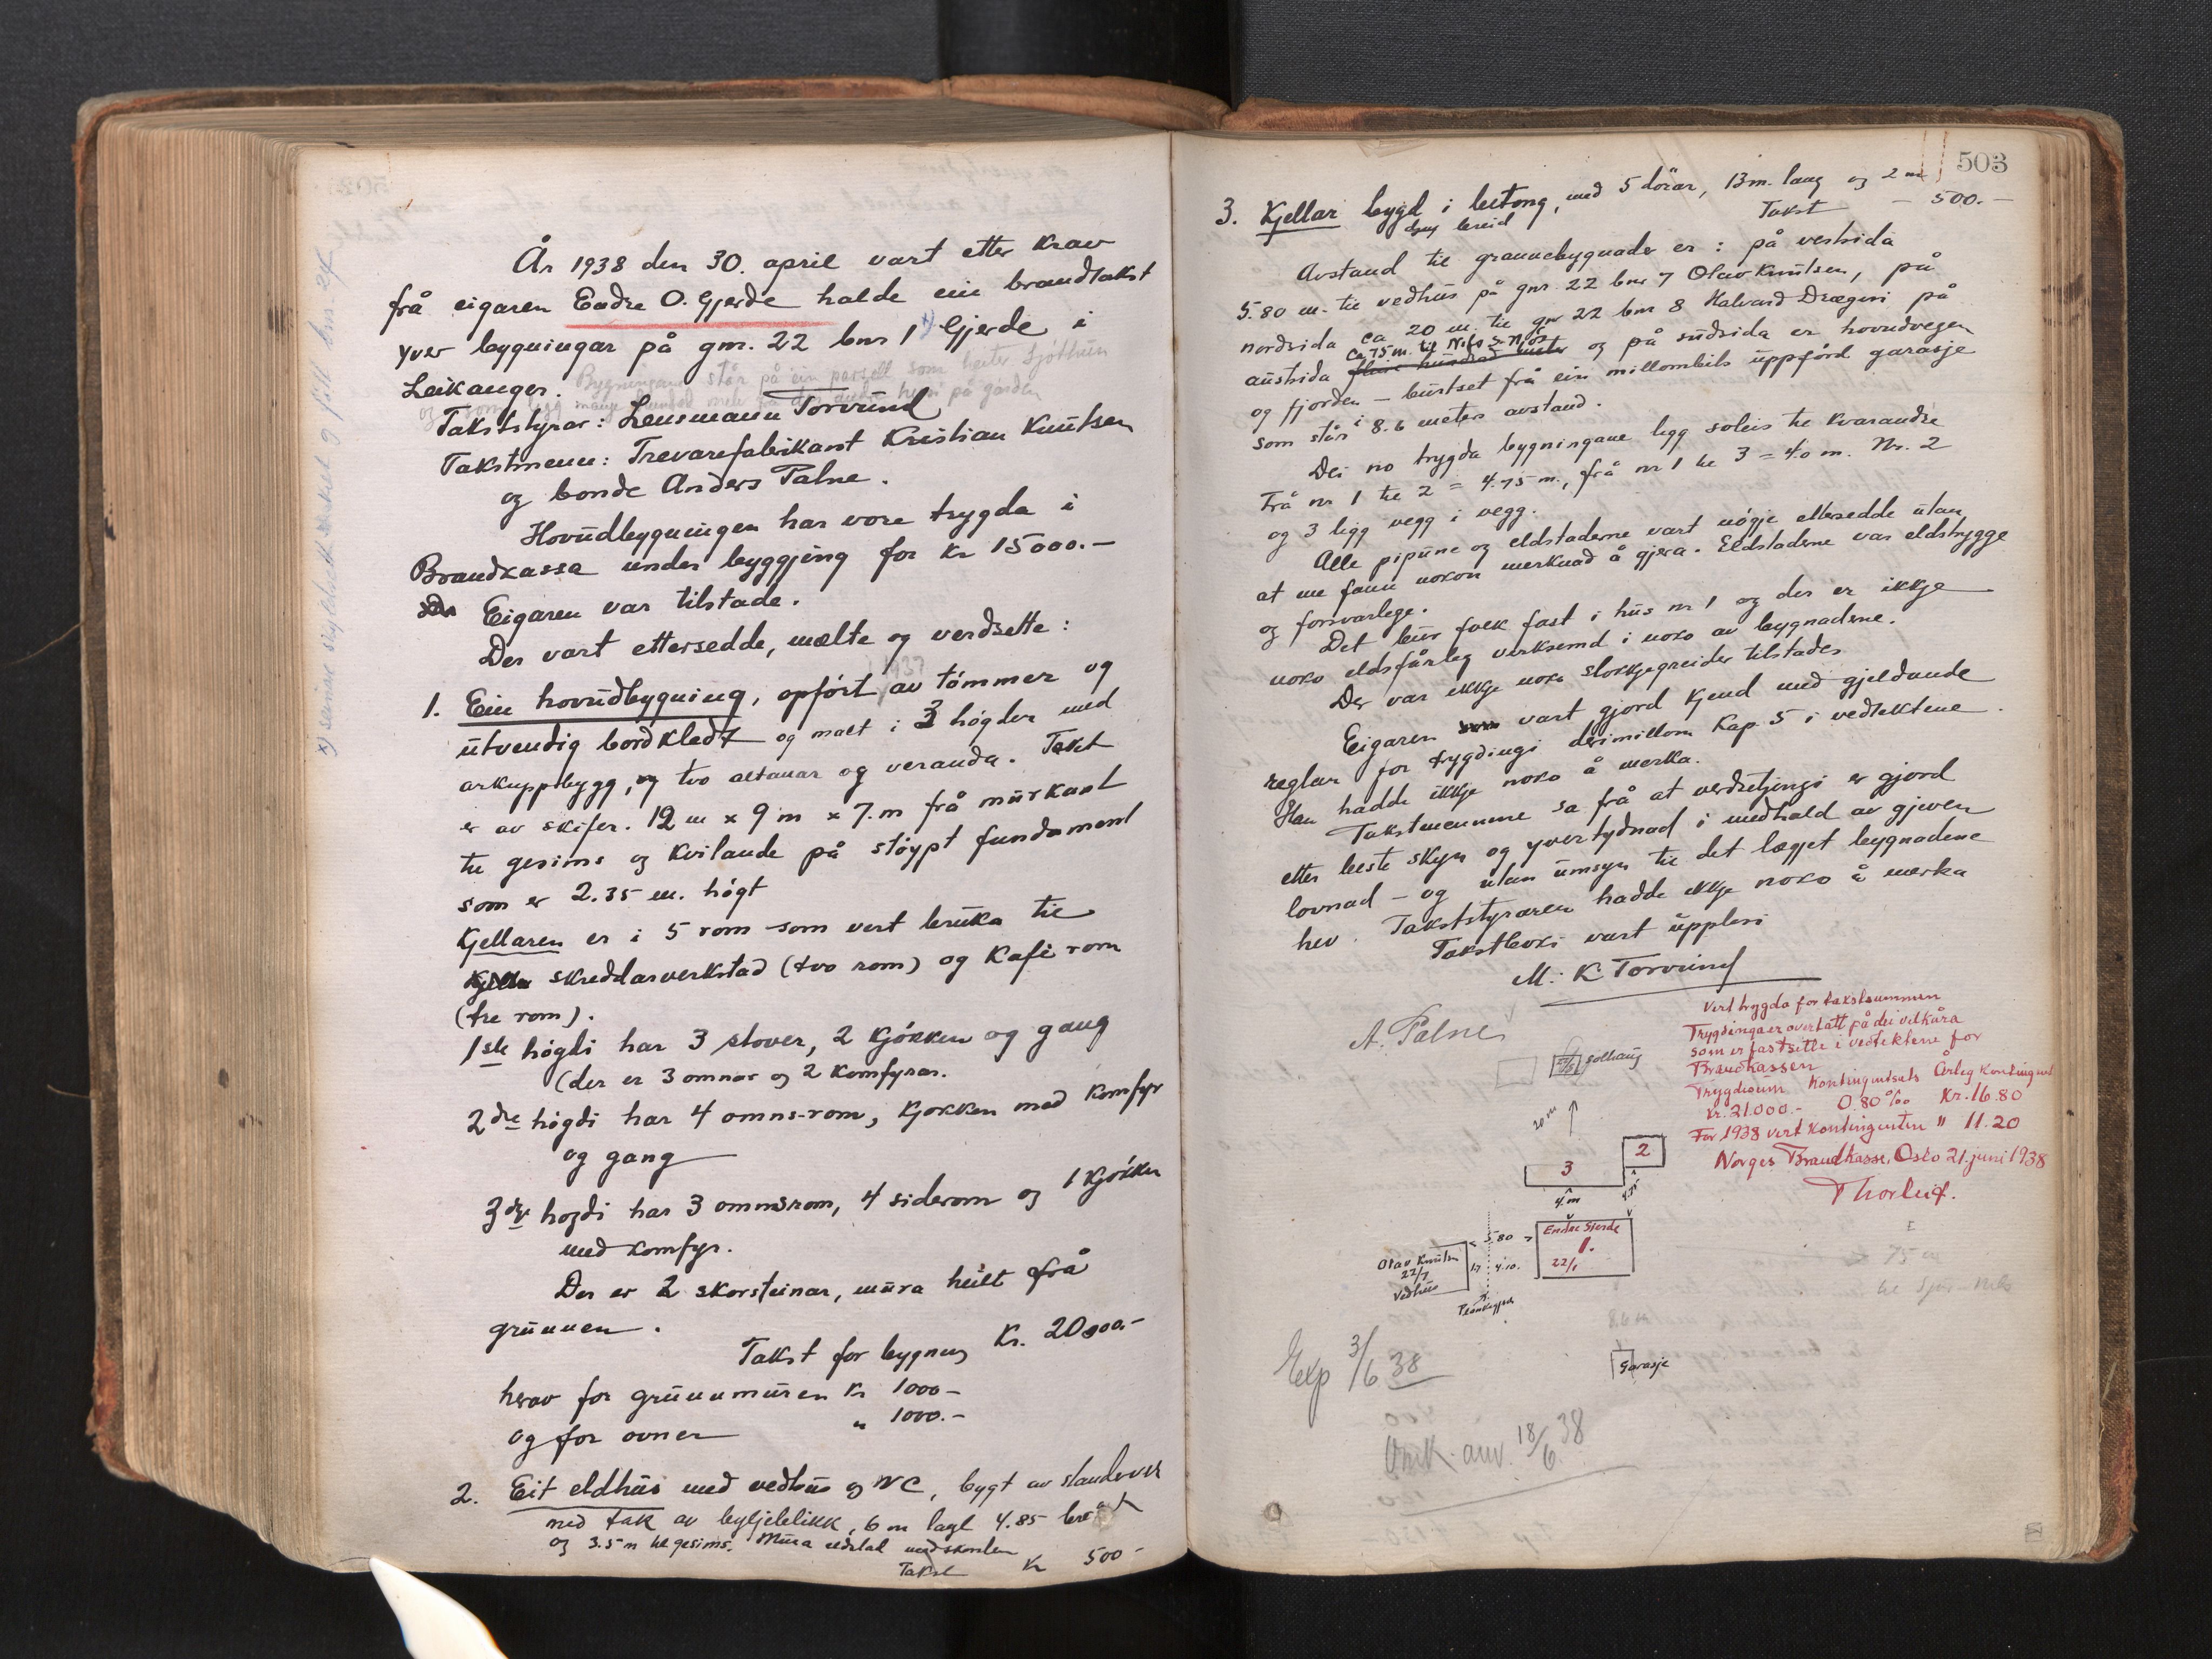 År 1938 den 30. april vart etter krav
frå eigaren Endre O. Gjerde halde ein brandtakst
yver bygningar på gnr. 22 bnr 1 x) Gjerde i
Leikanger. Bygningane står på ein parsell som heiter Sjøthun
og som ligg mange hundrad meter frå dei andre husi på garden
Takststyrar: Lensmann Torvund
Takstmenn: Trevarefabrikant Kristian Knutsen
og bonde Anders Talne.
Hovudbygningen har vore trygda i
Brandkassa under byggjing for kr 15000.-
Eigaren var tilstade.
Der vart ettersedde, mælte og verdsette:
1937
1. Ein hovudbygning, opført av tømmer og
utvendig bordkledt og malt i 3 høgder med
arkuppbygg, og tvo altanar og veranda. Taket
er av skifer. 12 m x 9 m x 7. m frå murkant
til gesims og kvilande på støypt fundament
som er 2.35 m. høgt
Kjellaren er i 5 rom som vert bruka til
skreddarverkstad (tvo rom) og Kafé rom
(tre rom).
1ste høgdi har 3 stover, 2 kjøkken og gang
(der er 3 omnar og 2 komfyrar.
2dre høgdi har 4 omns-rom, kjøkken med komfyr
og gang
3dje høgdi har 3 omnsrom, 4 siderom og 1 kjøkken
med komfyr.
Der er 2 skorsteinar, mura heilt frå
grunnen.
Takst for bygning Kr. 20000.-
herav for grunnmuren kr 1000-
og for ovner " 1000.-
2. Eit eldhus med vedhus og WC, bygt av standerverk
med tak av bylgjeblikk, 6 m langt 4.85 breidt
og 3.5 m til gesims. Mura eldstad med skorstein
Takst Kr 500-
503
3. Kjellar bygd i betong, med 5 dörar, 13 m. lang og 2 m
djup breid Takst - 500.-
Avstand til grannebygnader er: på vestsida
5.80 m. til vedhus på gnr. 22 bnr 7 Olav Knutsen, på
nordsida ca 20 m. til gnr 22 bnr 8 Halvard Drægni på
ca 75 m. til Nils S. Njøs
austsida og på sudsida er hovudvegen
og fjorden - burtset frå ein millombils uppførd garasje
som står i 8.6 meters avstand.
Dei no trygda bygningane ligg soleis til kvarandre
Frå nr 1 til 2 = 4.75 m., frå nr 1 til 3 = 4.0 m. Nr. 2
og 3 ligg vegg i vegg.
Alle pipune og eldstaderne vart nøgje ettersedde utan
at me fann nokon merknad å gjera. Eldstaderne var eldstrygge
og forsvarlege.
Det bur folk fast i hus nr 1 og der er ikkje
noko eldsfårleg verksemd i noko av bygnadene.
Der var ikkje noko slokkjegreider tilstades
Eigaren vart gjord kjend med gjeldande
reglar for trygdingi derimillom Kap. 5 i vedtektene.
Han hadde ikkje noko å merka.
Takstmennene sa frå at verdsetjingi er gjord
etter beste skyn og yvertydnad i medhald av gjeven
lovnad - og utan umsyn til det lægjet bygnadene
hev. Takststyraren hadde ikkje noko å merka
Takstboki vart upplesi
M. K Torvund
A. Talne
Vert trygda for takstsummen
Trygdinga er overtatt på dei vilkåra
som er fastsette i vedtektene for
Brandkassen
Trygdesum Kontingentsats Årleg Kontingent
Kr. 21.000.- 0.80 ‰ Kr. 16.80
For 1938 vert kontingenten " 11.20
Norges Brandkasse, Oslo 21. juni 1938
22/8 Solhaug
20 m
3
2
4. m
5.80
Endre Gjerde
1.
22/1
4.10.
Olav Knutsen
22/7
Vedhus
Garasje
75 m
Exp 3/6 38
Omk. anv. 18/6 38